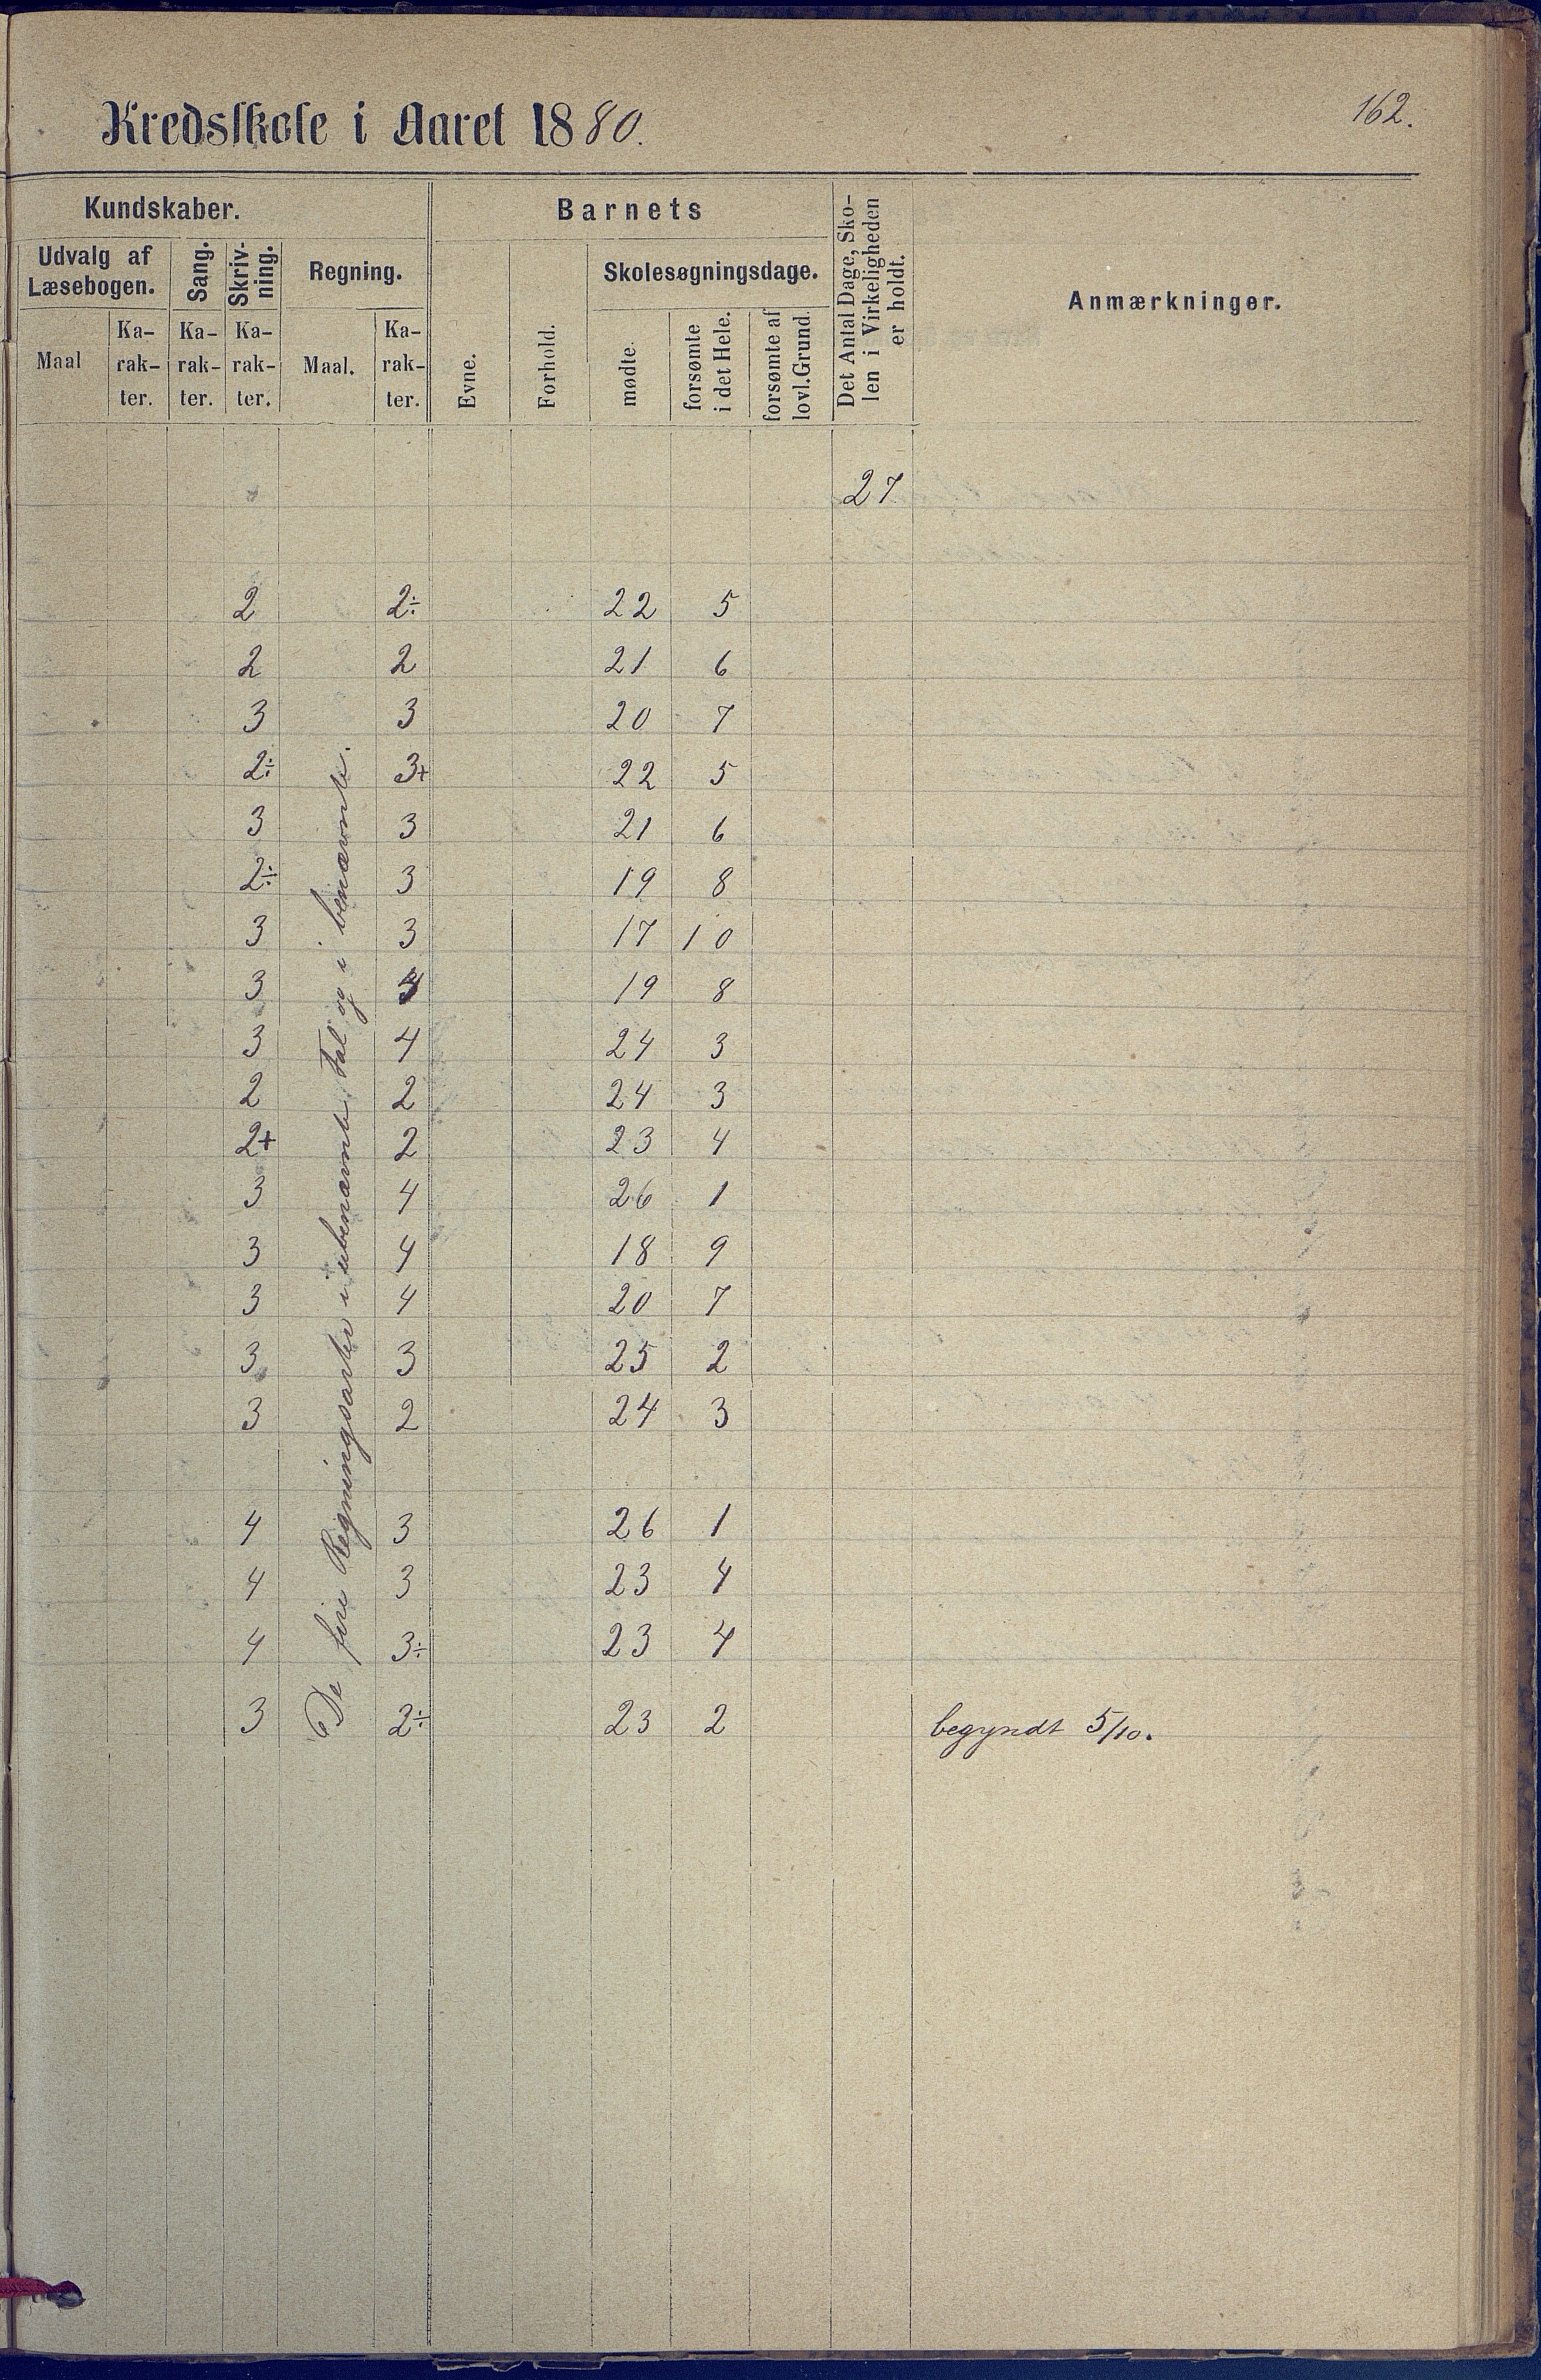 162.
Kredsskole i Aaret 1880.
Kundskaber.
Barnets
Det Antal Dage, Sko-
len i Virkeligheden
er holdt.
Anmærkninger.
Udvalg af
Læsebogen.
Sang.
Skriv-
ning.
Regning.
Skolesøgningsdage.
Maal
Ka-
rak-
ter.
Ka-
rak-
ter.
Ka-
rak-
ter.
Maal.
Ka-
rak-
ter.
Evne.
Forhold.
mødte.
forsømte
i det Hele.
forsømte af
lovl. Grund.
27
De fire Regningsarter i ubenævnte Tal og i benævnte.
2 2÷ 22 5
2 2 21 6
3 3 20 7
2÷ 3+ 22 5
3 3 21 6
2÷ 3 19 8
3 3 17 10
3 19 8
3 4 24 3
2 2 24 3
2+ 2 23 4
3 4 26 1
3 4 18 9
3 4 20 7
3 3 25 2
3 2 24 3
4 3 26 1
4 3 23 4
4 3÷ 23 4
3 2÷ 23 2 begyndt 5/10.